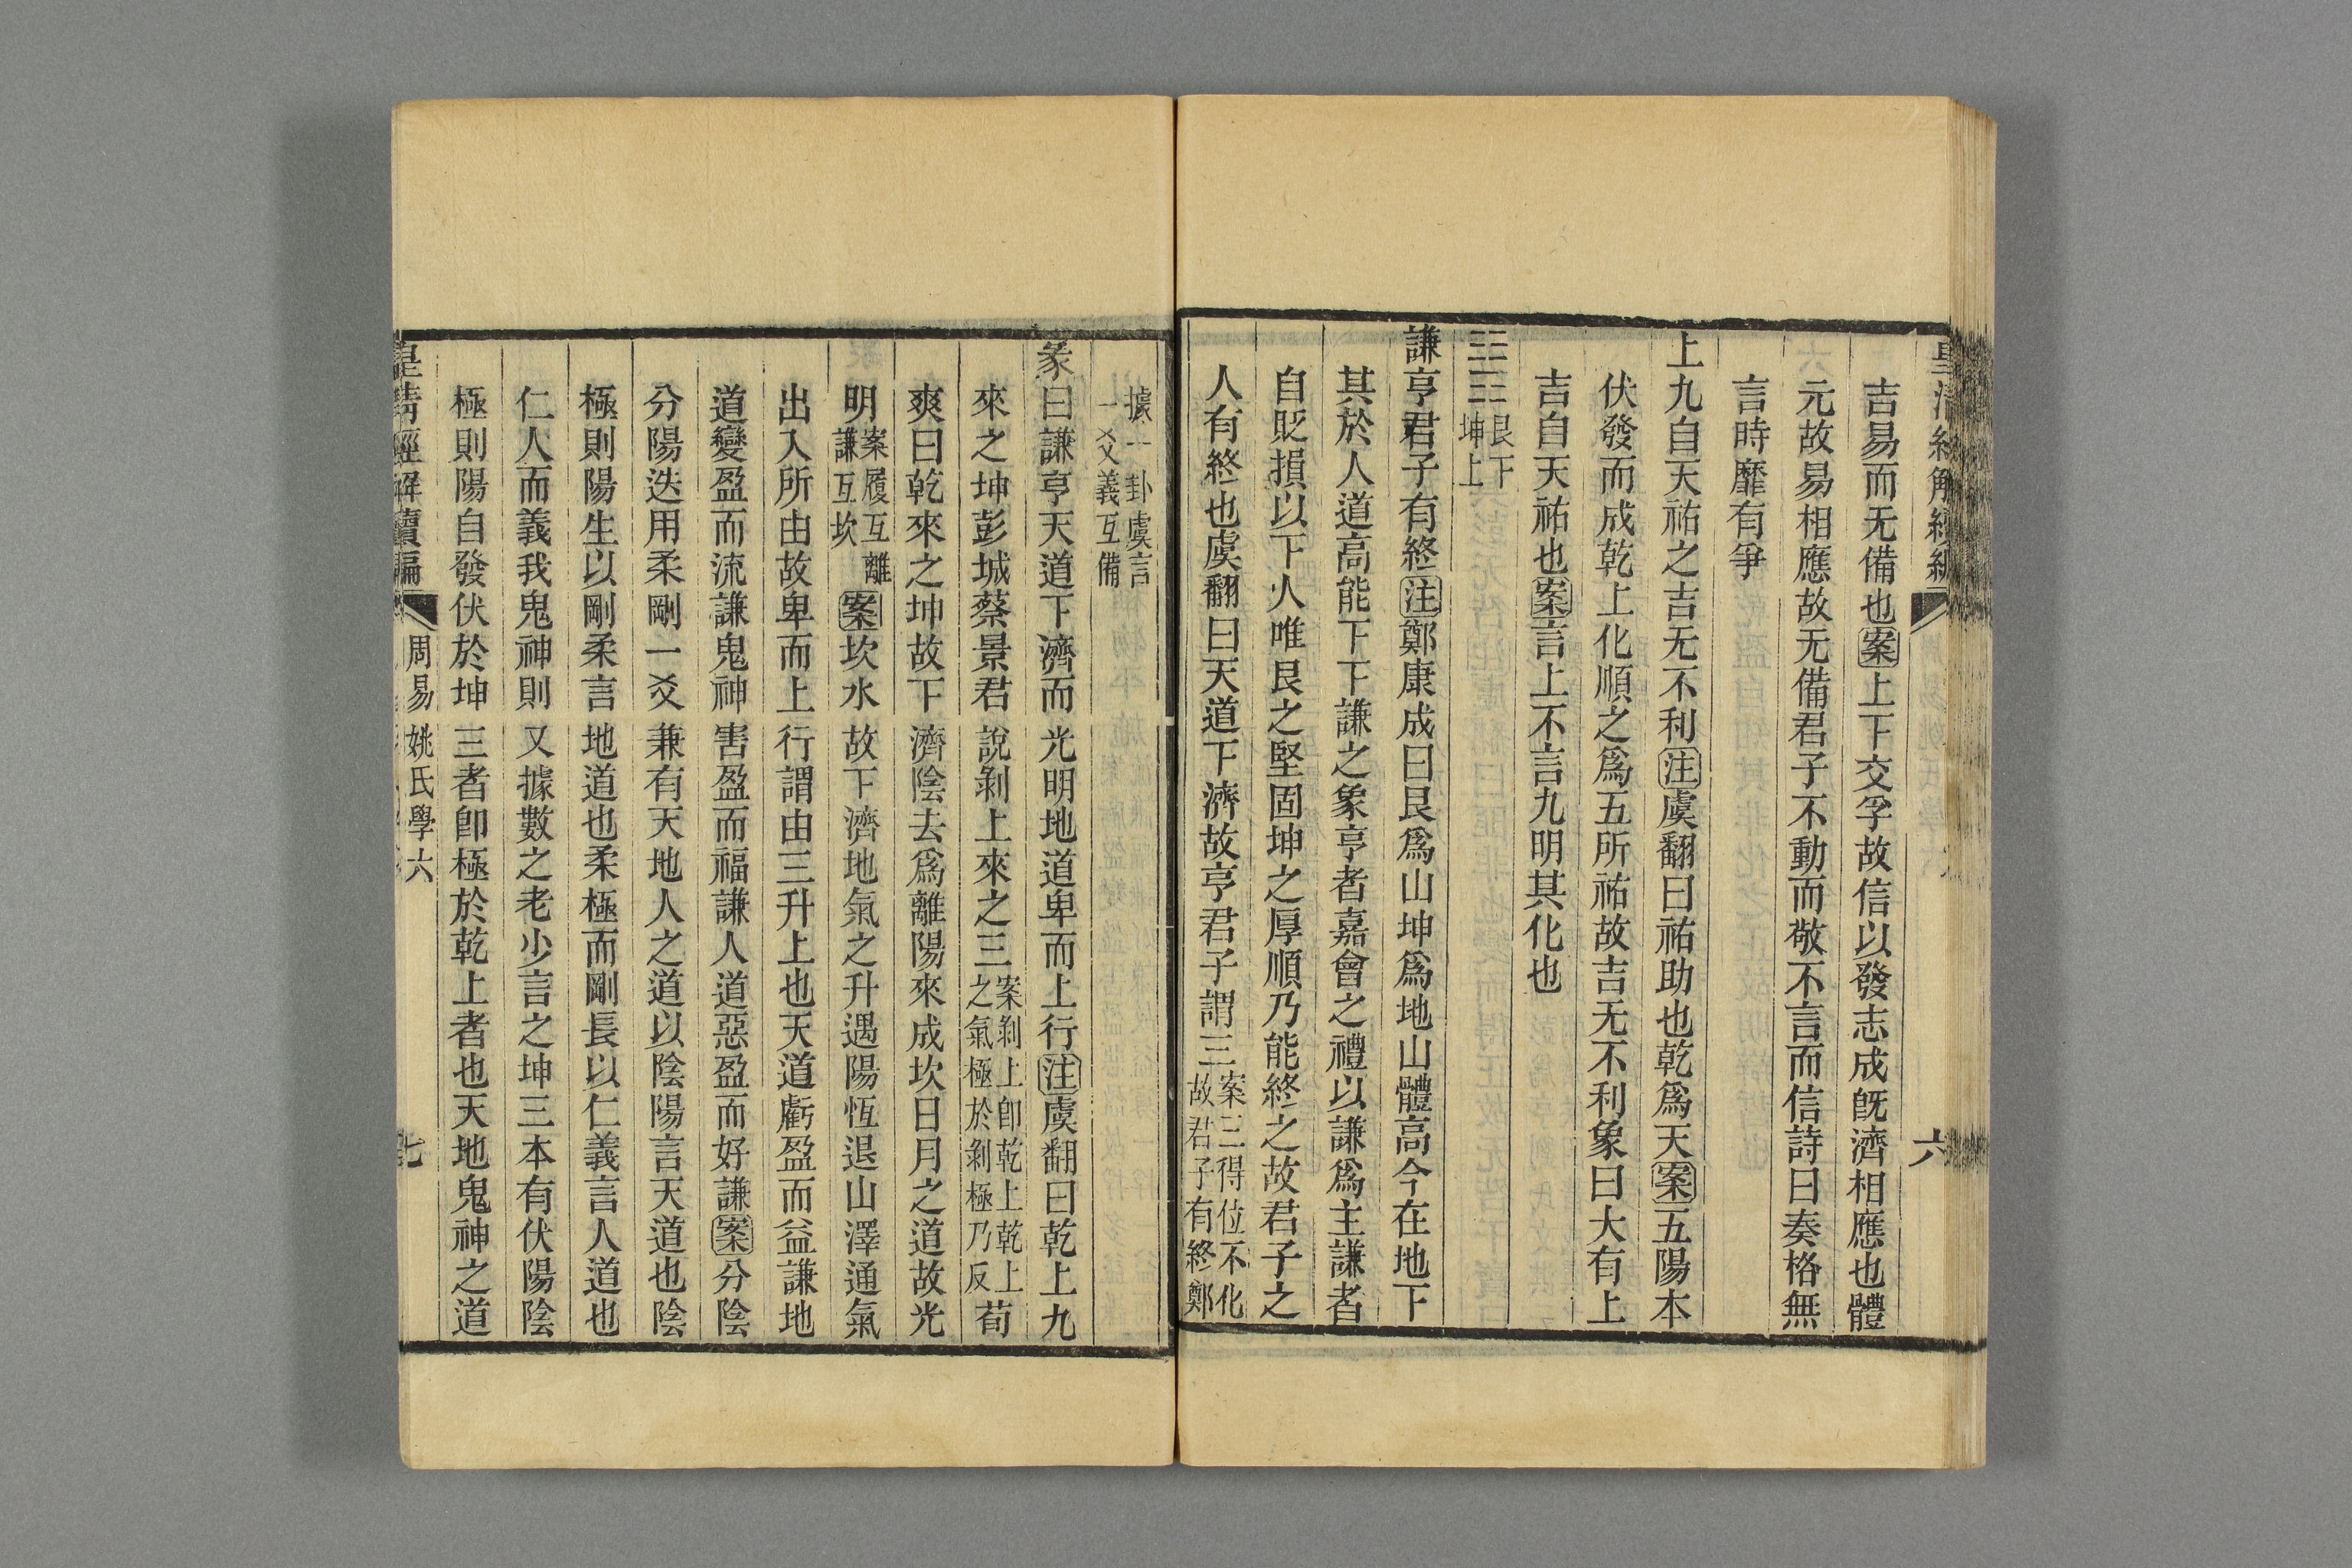 吉易而无備也案上下交孚故信以發志成旣濟相應也體
元故易相應故无備君子不動而敬不言而信詩曰奏格無
言時靡有爭
上九自天祐之吉无不利注虞翻曰祐助也乾爲天案五陽本
伏發而成乾上化順之爲五所祐故吉无不利象曰大有上
吉自天祐也案言上不言九明其化也
艮下
坤上
謙亨君子有終注鄭康成曰艮爲山坤爲地山體高今在地下
其於人道高能下下謙之象亨者嘉會之禮以謙爲主謙者
自貶損以下人唯艮之堅固坤之厚順乃能終之故君子之
人有終也虞翻曰天道下濟故亨君子謂三案三得位不化故君子有終鄭
據一卦虞言
一爻義互備
彖曰謙亨天道下濟而光明地道卑而上行注虞翻曰乾上九
來之坤彭城蔡景君說剝上來之三案剝上卽乾上乾上之氣極於剝極乃反荀
爽曰乾來之坤故下濟陰去爲離陽來成坎日月之道故光
明案履互離謙互坎案坎水故下濟地氣之升遇陽恆退山澤通氣
出入所由故卑而上行謂由三升上也天道虧盈而益謙地
道變盈而流謙鬼神害盈而福謙人道惡盈而好謙案分陰
分陽迭用柔剛一爻兼有天地人之道以陰陽言天道也陰
極則陽生以剛柔言地道也柔極而剛長以仁義言人道也
仁人而義我鬼神則又據數之老少言之坤三本有伏陽陰
極則陽自發伏於坤三者卽極於乾上者也天地鬼神之道
皇清經解續編
周易姚氏學六
七
六